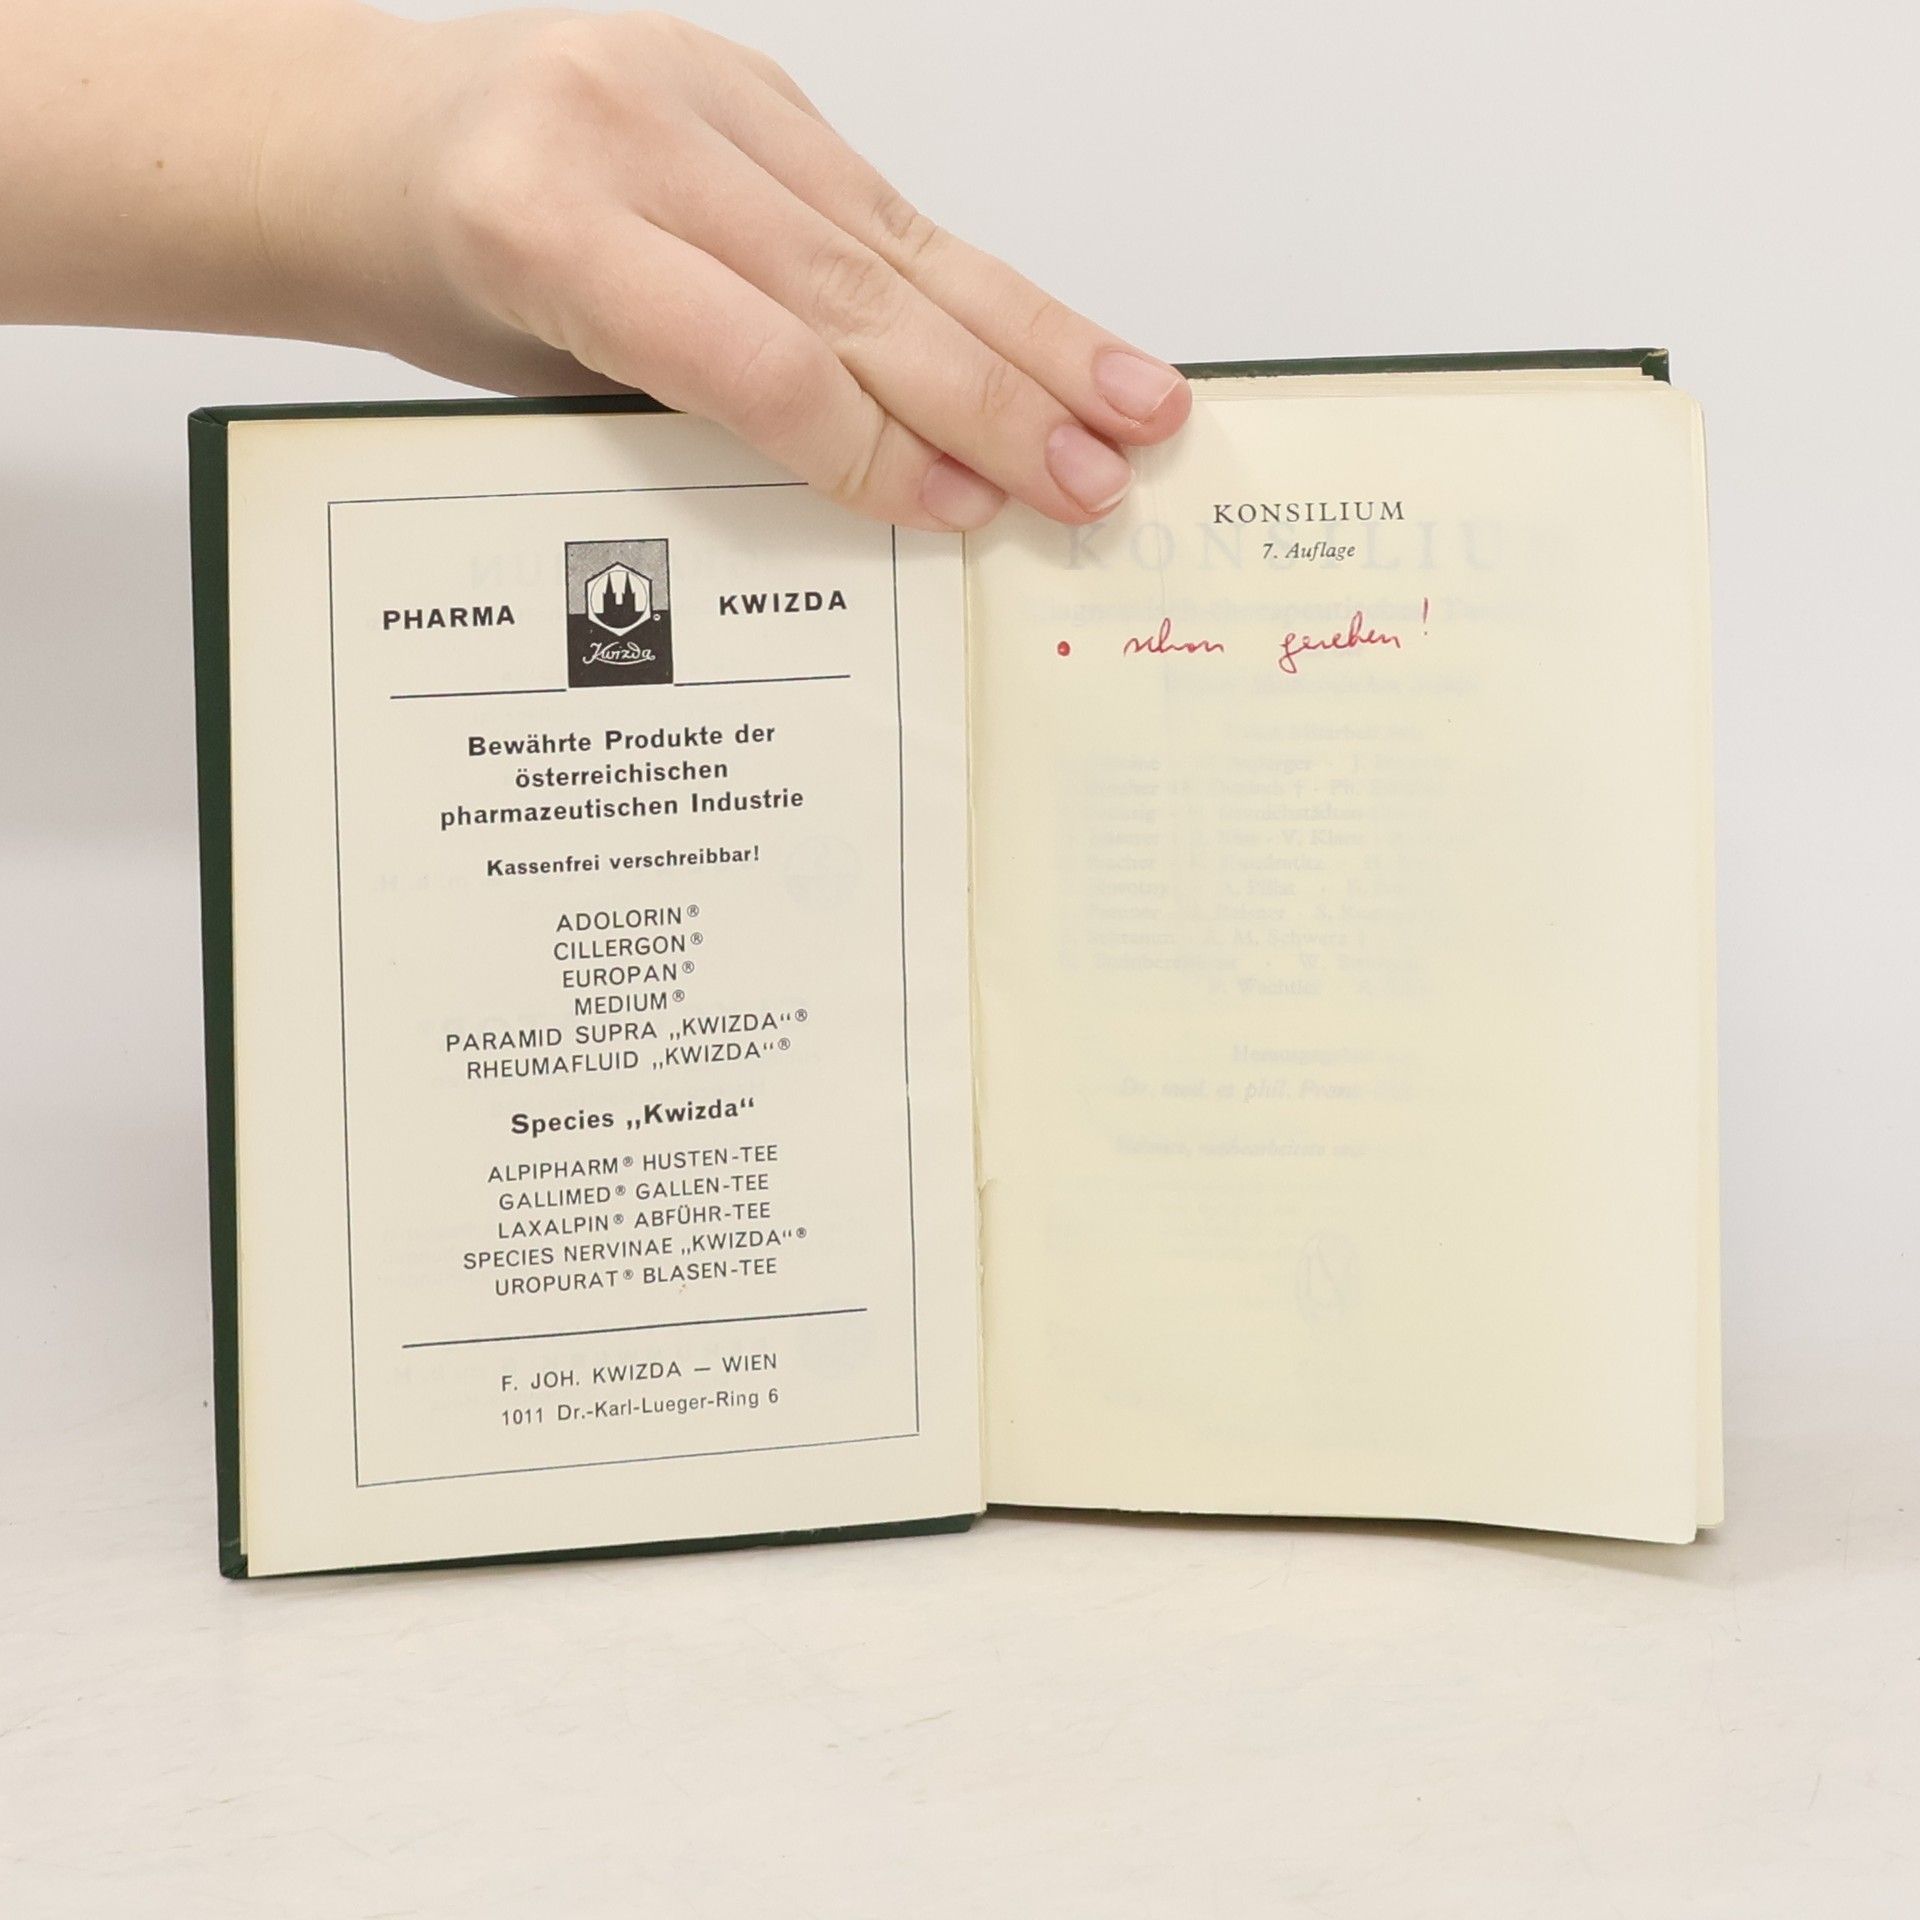 PHARMA KWIZDA
Kwizda
Bewährte Produkte der
österreichischen
pharmazeutischen Industrie
Kassenfrei verschreibbar!
ADOLORIN®
CILLERGON®
EUROPAN®
MEDIUM®
PARAMID SUPRA „KWIZDA“®
RHEUMAFLUID „KWIZDA“®
Species „Kwizda“
ALPIPHARM® HUSTEN-TEE
GALLIMED® GALLEN-TEE
LAXALPIN® ABFÜHR-TEE
SPECIES NERVINAE „KWIZDA“®
UROPURAT® BLASEN-TEE
F. JOH. KWIZDA — WIEN
1011 Dr.-Karl-Lueger-Ring 6
KONSILIUM
7. Auflage
• schon gesehen!